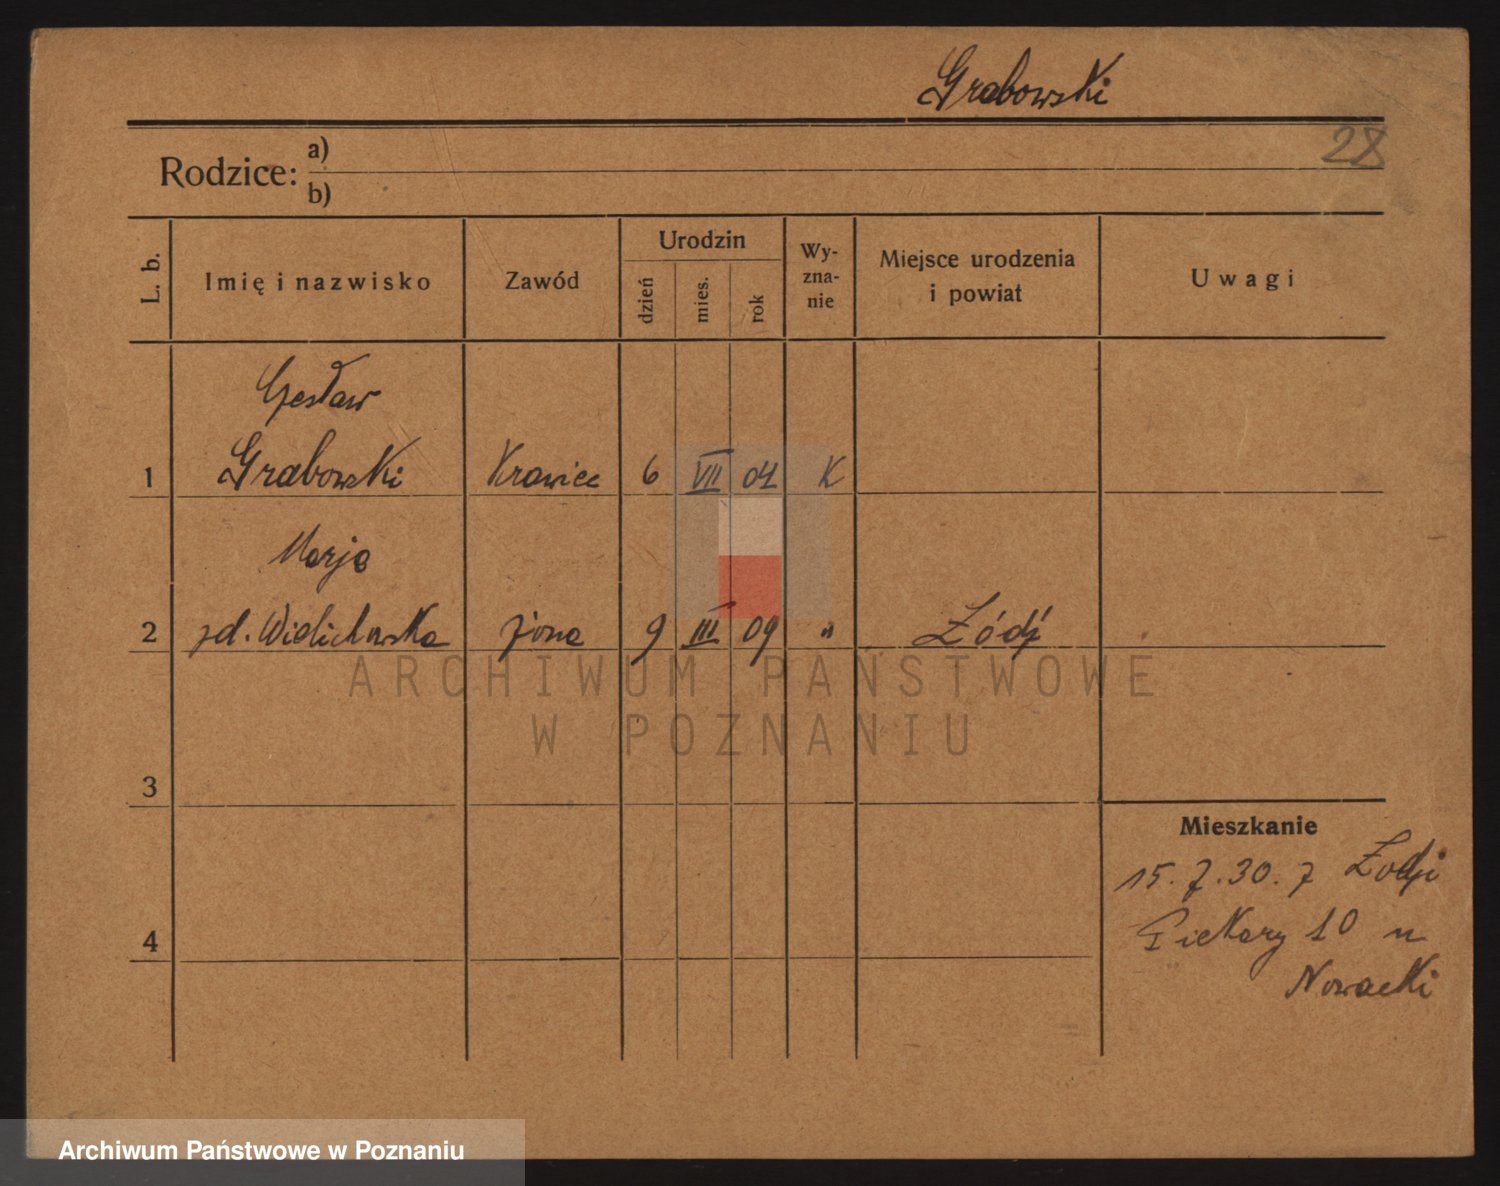 Grabowski
28
Rodzice: a)
b)
L. b.
Imię i nazwisko
Zawód
Urodzin
dzień
mies.
rok
Wy-
zna-
nie
Miejsce urodzenia
i powiat
Uwagi
Czesław
1 Grabowski Krawiec 6 VII 04 K
Marja
2 zd. Wielichowska żona 9 III 09 " Łódź
ARCHIWUM PAŃSTWOWE
W POZNANIU
3
Mieszkanie
15. 7. 30. z Łodzi
4
Piekary 10 u
Nowacki
Archiwum Państwowe w Poznaniu